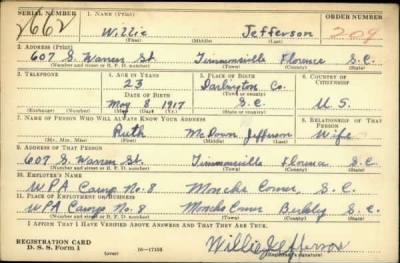 SERIAL NUMBER 1. NAME (Print) ORDER NUMBER
2662 Willie Jefferson 209
(First) (Middle) (Last)
2. ADDRESS (Print)
607 S. Warren St. Timmonsville Florence S.C.
(Number and street or R. F. D. number) (Town) (County) (State)
3. TELEPHONE 4. AGE IN YEARS 5. PLACE OF BIRTH 6. COUNTRY OF CITIZENSHIP
23 Darlington Co.
DATE OF BIRTH (Town or county)
May 8 1917 S.C. U.S.
(Exchange) (Number) (Mo.) (Day) (Yr.) (State or country)
7. NAME OF PERSON WHO WILL ALWAYS KNOW YOUR ADDRESS 8. RELATIONSHIP OF THAT PERSON
Ruth Jefferson Wife
(Mr., Mrs., Miss) (First) (Middle) (Last)
9. ADDRESS OF THAT PERSON
607 S. Warren St. Timmonsville Florence S.C.
(Number and street or R. F. D. number) (Town) (County) (State)
10. EMPLOYER'S NAME
WPA Camp No. 8 Moncks Corner, S.C.
11. PLACE OF EMPLOYMENT OR BUSINESS
WPA Camp No. 8 Moncks Corner Berkley S.C.
(Number and street or R. F. D. number) (Town) (County) (State)
I AFFIRM THAT I HAVE VERIFIED ABOVE ANSWERS AND THAT THEY ARE TRUE.
REGISTRATION CARD
D. S. S. Form 1 (over) 16—17105 Willie Jefferson
(Registrant's signature)